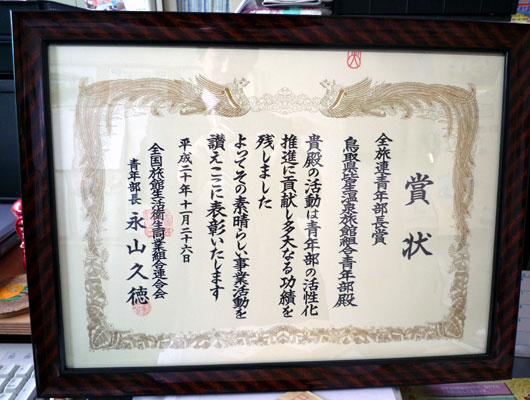 賞状
全旅連青年部長賞
鳥取県皆生温泉旅館組合青年部殿
貴殿の活動は青年部の活性化
推進に貢献し多大なる功績を
残しました
よってその素晴らしい事業活動を
讃えここに表彰いたします
平成二十年十一月二十六日
全国旅館生活衛生同業組合連合会
青年部長 永山久徳